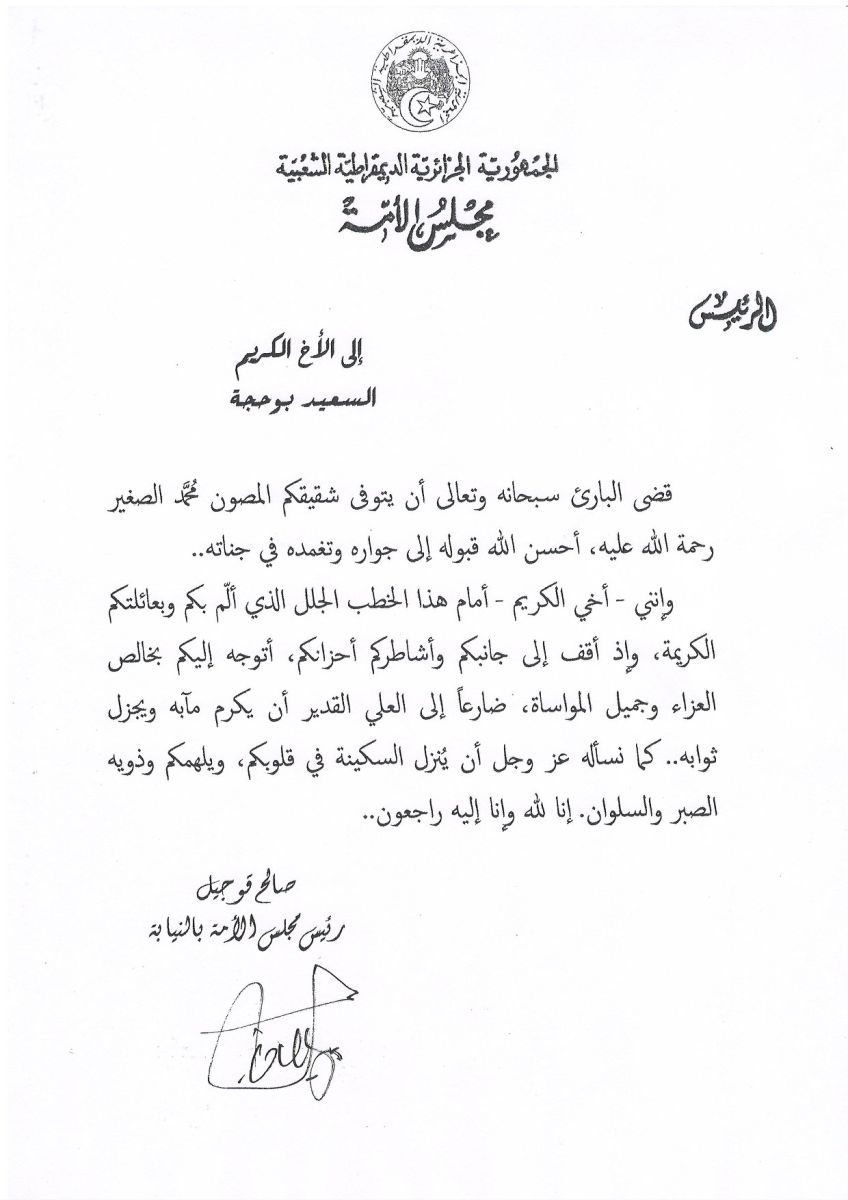 الجمهورية الجزائرية الديمقراطية الشعبية
الجمْهُوريّة الجزائريّة الديمقراطيّة الشّعْبيّة
مجْلسُ الأمّة
الرئيس
إلى الأخ الكريم
السعيد بوحجة
قضى البارئ سبحانه وتعالى أن يتوفى شقيقكم المصون مُحمَّد الصغير
رحمة الله عليه، أحسن الله قبوله إلى جواره وتغمده في جناته..
وإنني - أخي الكريم - أمام هذا الخطب الجلل الذي ألّم بكم وبعائلتكم
الكريمة، وإذ أقف إلى جانبكم وأشاطركم أحزانكم، أتوجه إليكم بخالص
العزاء وجميل المواساة، ضارعاً إلى العلي القدير أن يكرم مآبه ويجزل
ثوابه.. كما نسأله عز وجل أن يُنزل السكينة في قلوبكم، ويلهمكم وذويه
الصبر والسلوان. إنا لله وإنا إليه راجعون..
صالح قوجيل
رئيس مجلس الأمة بالنيابة